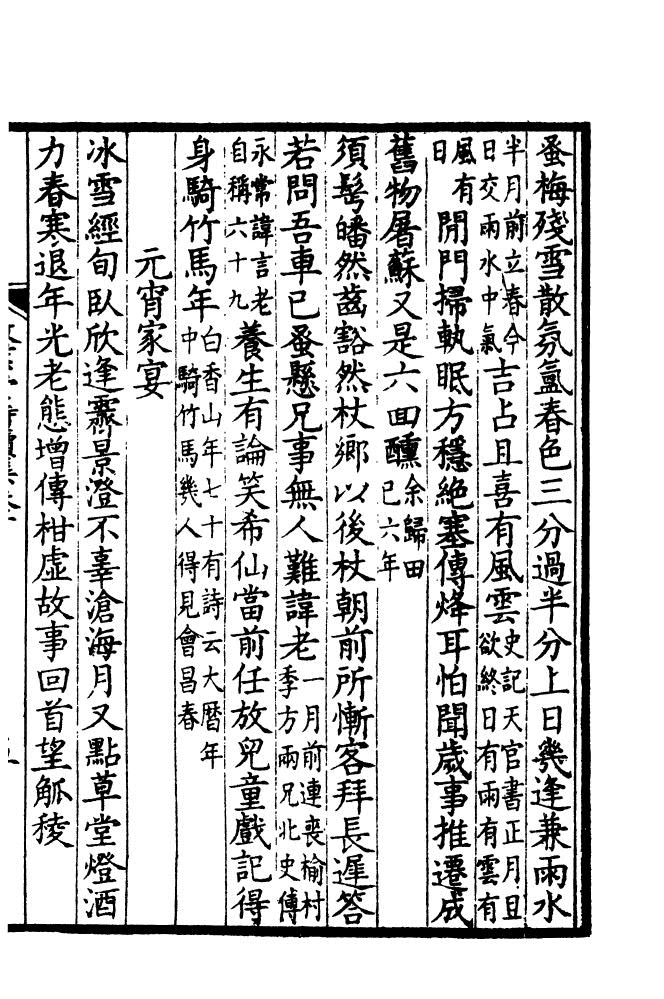 蚤梅殘雪散氛氳春色三分過半分上日幾逢兼雨水
半月前立春今日交雨水中氣吉占且喜有風雲史記天官書正月旦欲終日有雨有雲有
風有日開門掃執眠方穩絕塞傳烽耳怕聞歲事推遷成
舊物屠蘇又是六回醺余歸田已六年
須髩皤然齒豁然杖鄉以後杖朝前所慚客拜長遲答
若問吾車已蚤懸兄事無人難諱老一月前連喪榆村季方兩兄北史傳
永常諱言老自稱六十九養生有論笑希仙當前任放兒童戲記得
身騎竹馬年白香山年七十有詩云大曆年中騎竹馬幾人得見會昌春
元宵家宴
冰雪經旬臥欣逢霽景澄不辜滄海月又點草堂燈酒
力春寒退年光老態增傳柑虛故事回首望觚稜